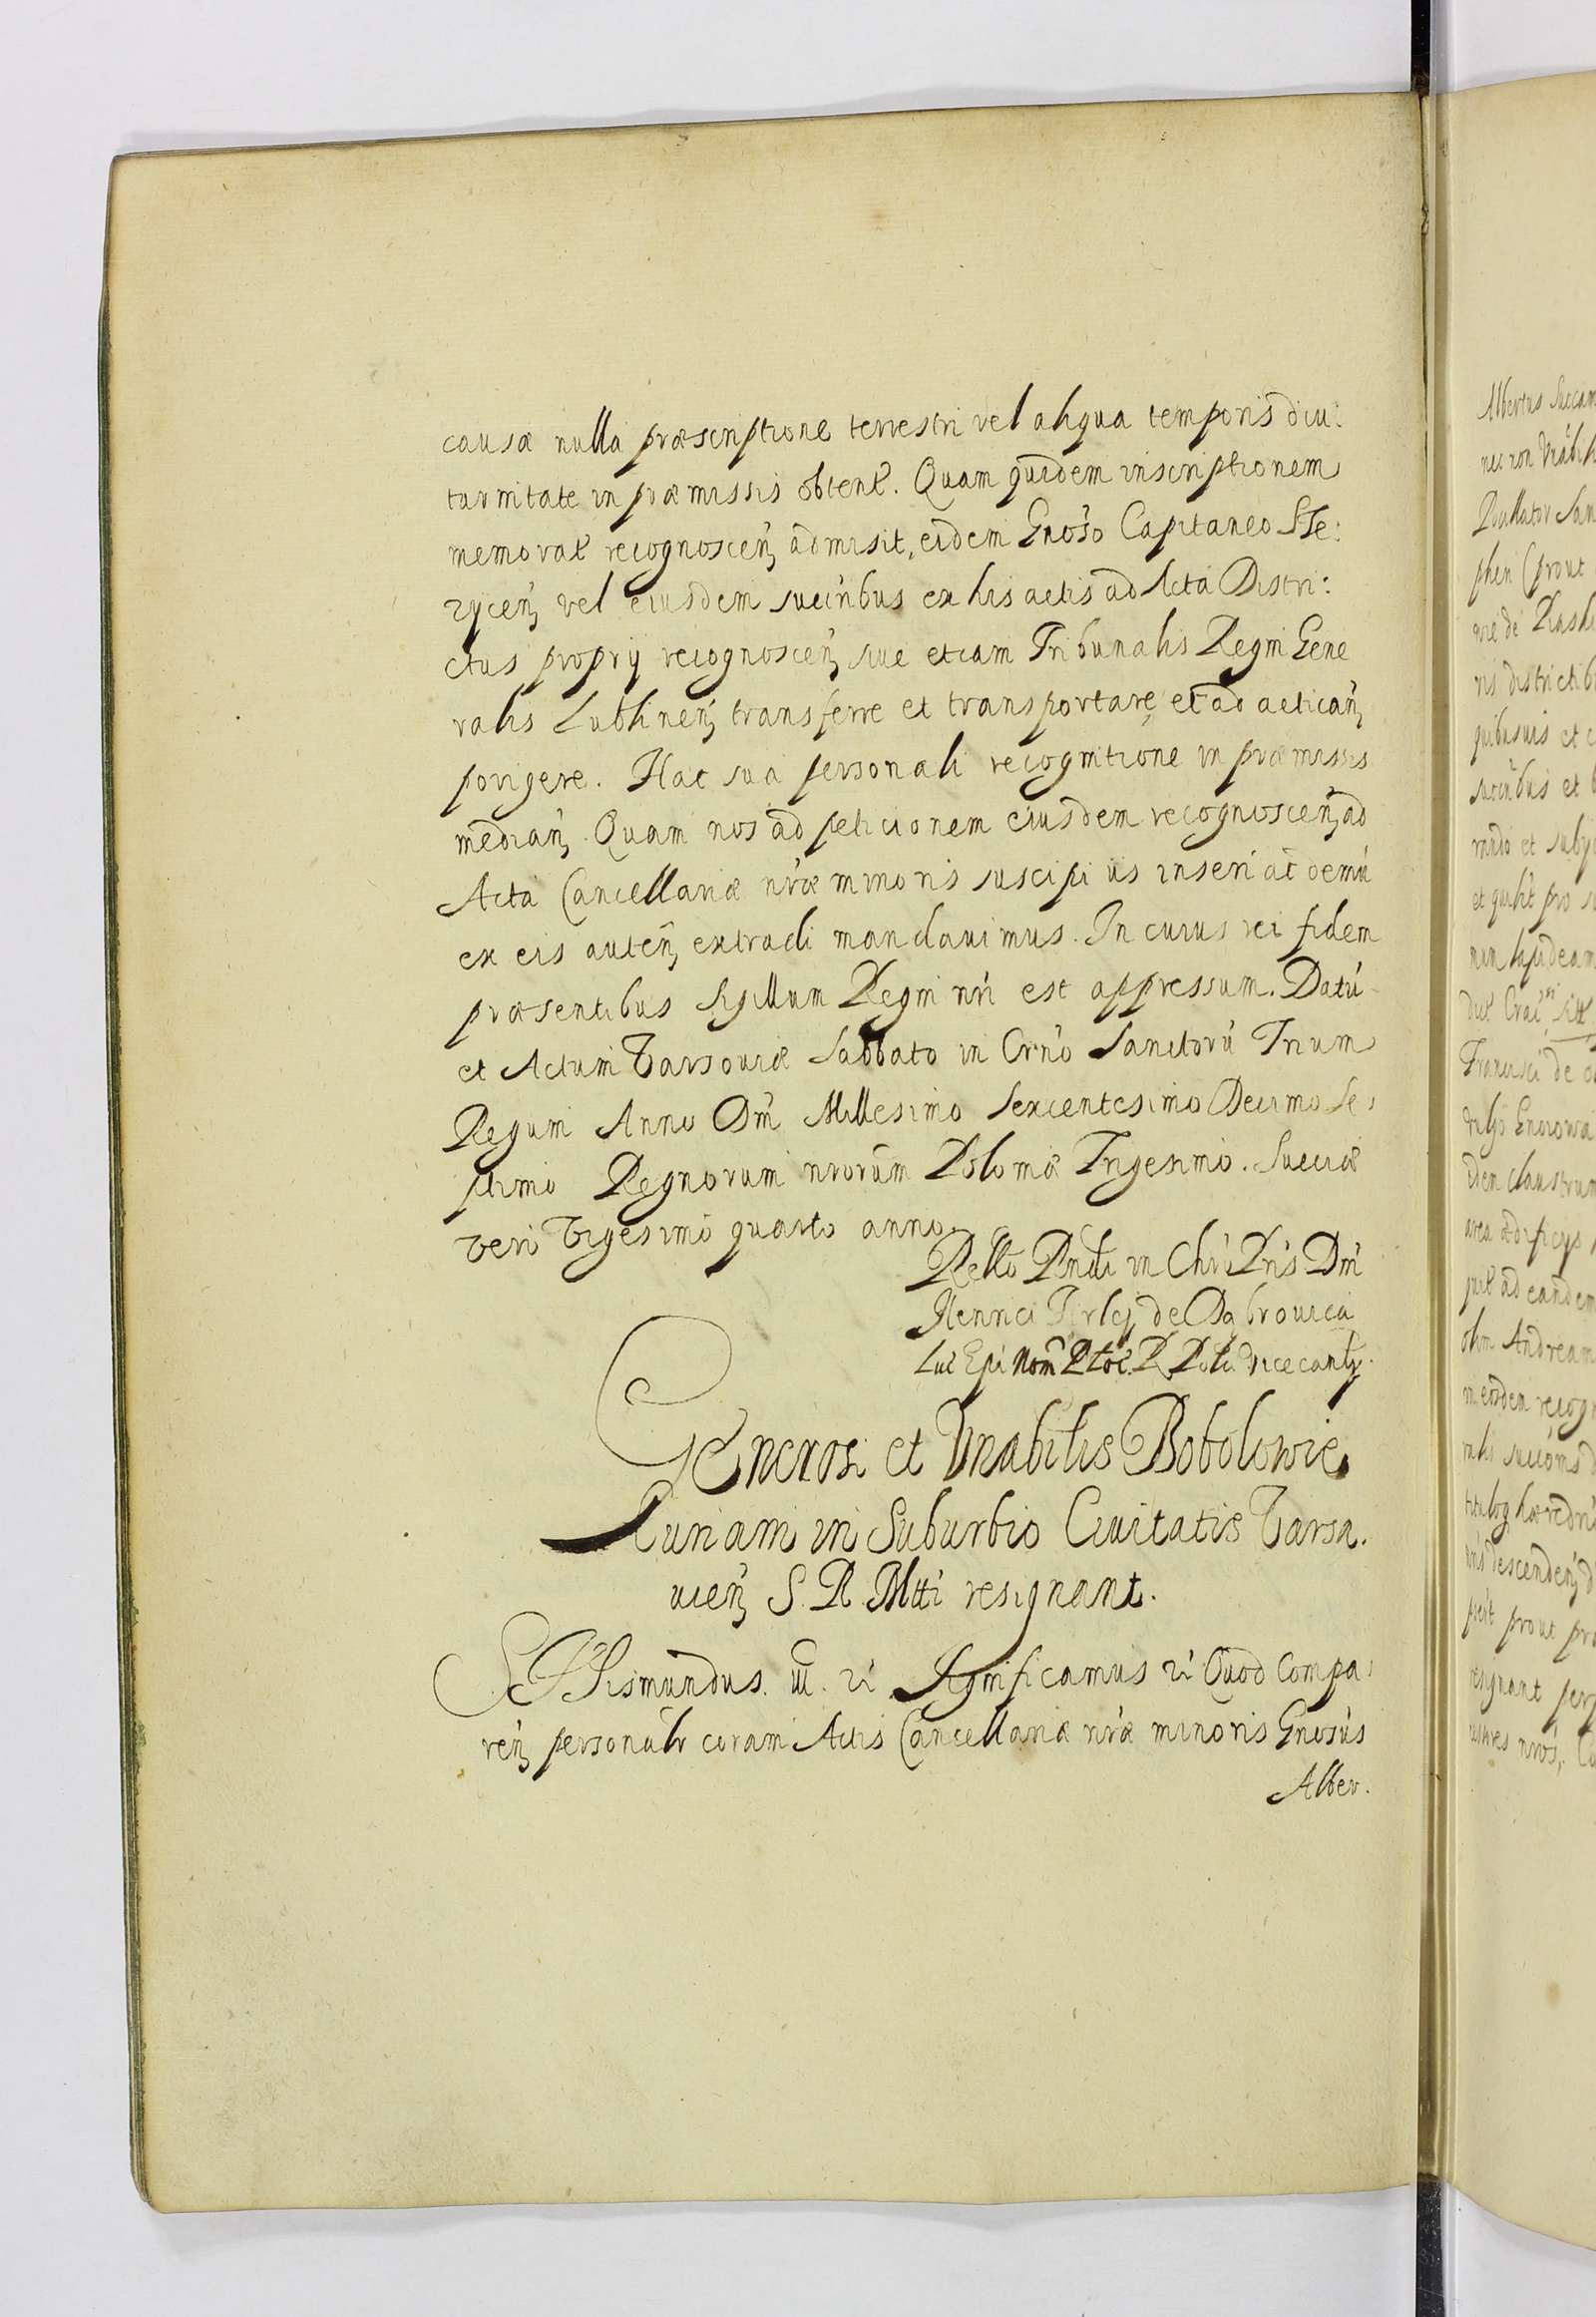 causæ nulla præscriptione terrestri vel aliqua temporis diu:
turnitate in præmissis obten̄t. Quam quidem inscriptionem
memorat̄ recognoscen̄ admisit, eidem Gnoso Capitaneo Ste:
zycen̄ vel eiusdem succribus ex his actis ad Acta Distri:
ctus proprij recognoscen̄ siue etiam Tribunalis Regni Gene
ralis Lublinen̄ transferre et transportare et ad actican̄
porigere. Hac sua personali recognitione in præmissis
median̄. Quam nos ad peticionem eiusdem recognoscen̄ ad
Acta Cancellariæ nræ minoris suscipi iis inseri ac demū
ex eis auten̄ extradi mandauimus. In cuius rei fidem
præsentibus Sigillum Regni nri est appressum. Datū
et Actum Varsouiæ Sabbato in Crno Sanctorū Trium
Regum Anno Dni Millesimo Sexcentesimo Decimo Se,
ptimo Regnorum nrorum Poloniæ Trigesimo. Sueciæ
vero Vigesimo quarto anno.
Rello Rndi in Chro Pris Dni
Henrici Firlej de Dąbrouica
Luc Epi Nom Ploc. R Poliæ Vicecanly.
Generosi et Vnabilis Bobolowie
Curiam in Suburbio Ciuitatis Varsa.
uien̄ S. R. Mtti resignant.
Sigismundus. III. ri Significamus ri Quod Compa,
ren̄ personalr coram Actis Cancellariæ nræ minoris Gnosus
Alber.
Albertus Succam
nec non
phen (prout
ris districtib
quibusuis et
succribus et
rando et subij
et quilt pro
Francisci de
dem claustrum
area ædificijs
ad eandem
olim Andream
in eisdem recog
descenden̄
prout pro
resignant per